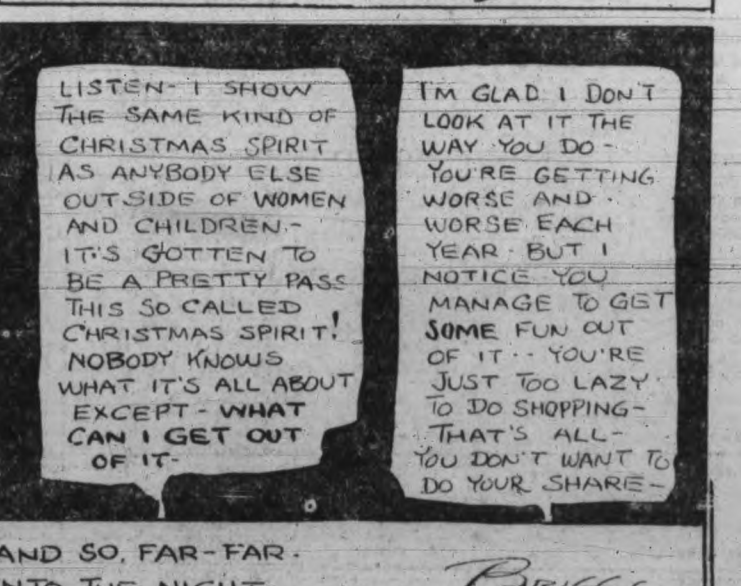 LISTEN- I SHOW
THE SAME KIND OF
CHRISTMAS SPIRIT
AS ANYBODY ELSE
OUTSIDE OF WOMEN
AND CHILDREN.-
IT'S GOTTEN TO
BE A PRETTY PASS
THIS SO CALLED
CHRISTMAS SPIRIT!
NOBODY KNOWS
WHAT IT'S ALL ABOUT
EXCEPT - WHAT
CAN I GET OUT
OF IT-
I'M GLAD I DON'T
LOOK AT IT THE
WAY YOU DO -
YOU'RE GETTING
WORSE AND
WORSE EACH
YEAR. BUT I
NOTICE YOU
MANAGE TO GET
SOME FUN OUT
OF IT -- YOU'RE
JUST TOO LAZY
TO DO SHOPPING-
THAT'S ALL-
YOU DON'T WANT TO
DO YOUR SHARE-
AND SO, FAR-FAR-
INTO THE NIGHT
BRIGGS